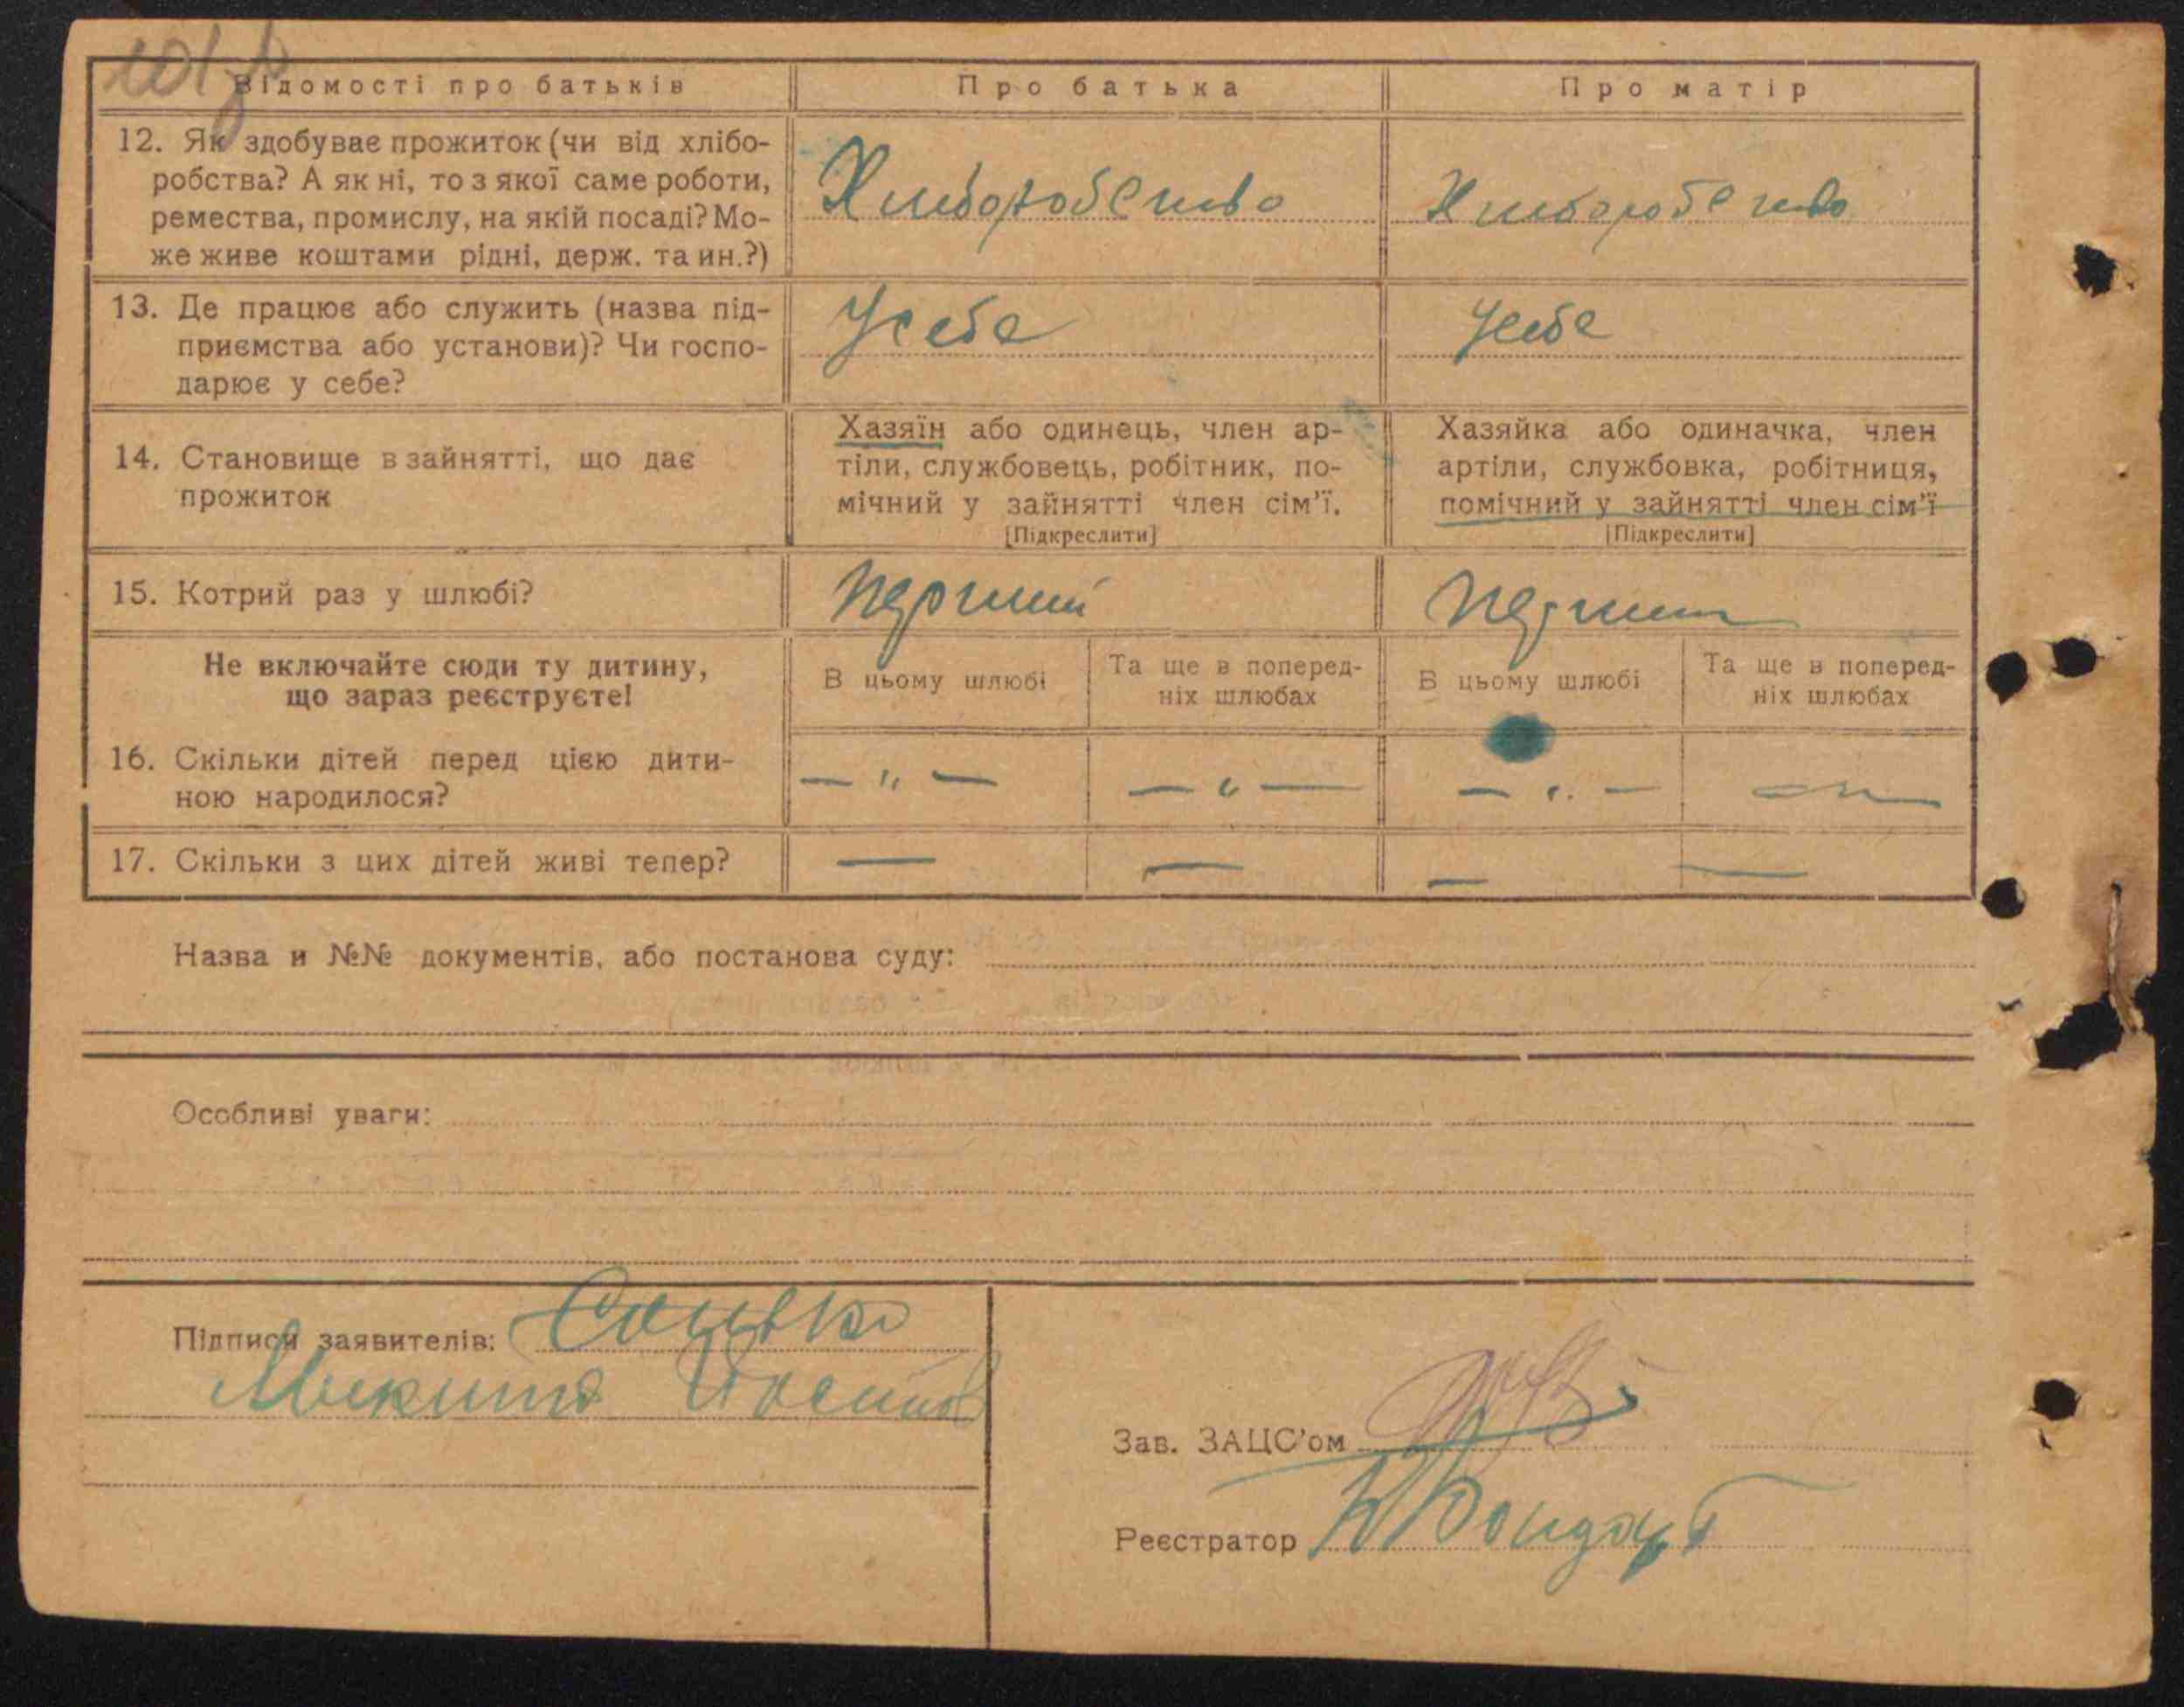 Відомості про батьків
Про батька
Про матір
12. Як здобуває прожиток (чи від хлібо-
робства? А як ні, то з якої саме роботи,
ремества, промислу, на якій посаді? Мо-
же живе коштами рідні, держ. та ин.?)
Хлиборобство
Хлиборобство
13. Де працює або служить (назва під-
приємства або установи)? Чи госпо-
дарює у себе?
Усебе
Усебе
14. Становище в зайнятті, що дає
прожиток
Хазяїн або одинець, член ар-
тіли, службовець, робітник, по-
мічний у зайнятті член сім'ї.
[Підкреслити]
Хазяйка або одиначка, член
артіли, службовка, робітниця,
помічний у зайнятті член сім'ї
[Підкреслити]
15. Котрий раз у шлюбі?
Перший
Перший
Не включайте сюди ту дитину,
що зараз реєструєте!
В цьому шлюбі
Та ще в поперед-
ніх шлюбах
В цьому шлюбі
Та ще в поперед-
ніх шлюбах
16. Скільки дітей перед цією дити-
ною народилося?
— „ —
— „ —
— „ —
—
17. Скільки з цих дітей живі тепер?
—
—
—
—
Назва и №№ документів, або постанова суду:
Особливі уваги:
Підписи заявителів:
Микита
Зав. ЗАЦС'ом
Реєстратор